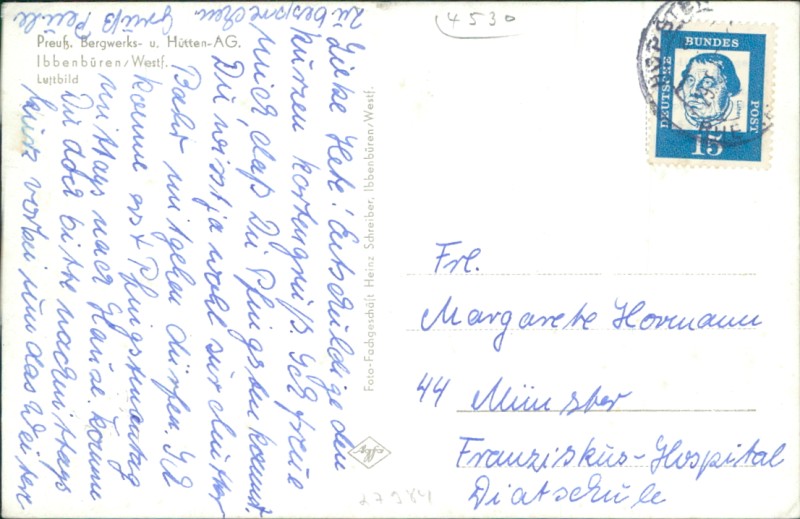 Preuß. Bergwerks- u. Hütten-AG.
Ibbenbüren/Westf.
Luftbild
Liebe Grete! Entschuldige den
kurzen Kartengruß. Ich freue
mich, daß Du Pfingsten kommst.
Du weißt ja wohl nur mit der
Bahn mitgehen dürfen. Ich
komme erst Pfingstmontag
mittags nach Hause. Komm
Du doch bitte nachmittags
kurz vorbei um das Weitere
zu besprechen.
Gruß
Foto-Fachgeschäft Heinz Schreiber, Ibbenbüren/Westf.
4530
DEUTSCHE
BUNDES
POST
15
Luther
Frl.
Margarete Hovmann
44 Münster
Franziskus-Hospital
Diätschule
27984